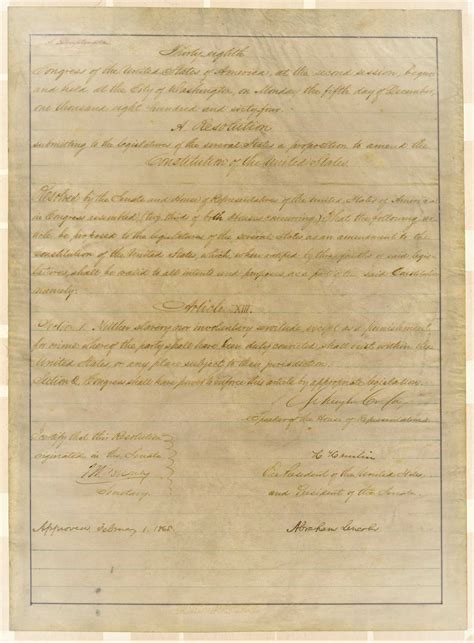 Thirty-eighth
Congress of the United States of America, at the second session, begun
and held at the City of Washington, on Monday the fifth day of December,
one thousand eight hundred and sixty-four.
A Resolution
submitting to the legislatures of the several States a proposition to amend the
Constitution of the United States.
Resolved by the Senate and House of Representatives of the United States of America
in Congress assembled, (two thirds of both Houses concurring,) That the following
be proposed to the legislatures of the several States as an amendment to the
Constitution of the United States, which, when ratified by three fourths of said legis-
latures, shall be valid to all intents and purposes, as a part of the said Constitution
namely:
Article XIII.
Section 1. Neither slavery nor involuntary servitude, except as a punishment
for crime whereof the party shall have been duly convicted, shall exist within the
United States, or any place subject to their jurisdiction.
Section 2. Congress shall have power to enforce this article by appropriate legislation.
Schuyler Colfax
Speaker of the House of Representatives
I certify that this Resolution
originated in the Senate
Secretary
H Hamlin
Vice President of the United States
and President of the Senate
Approved February 1. 1865
Abraham Lincoln